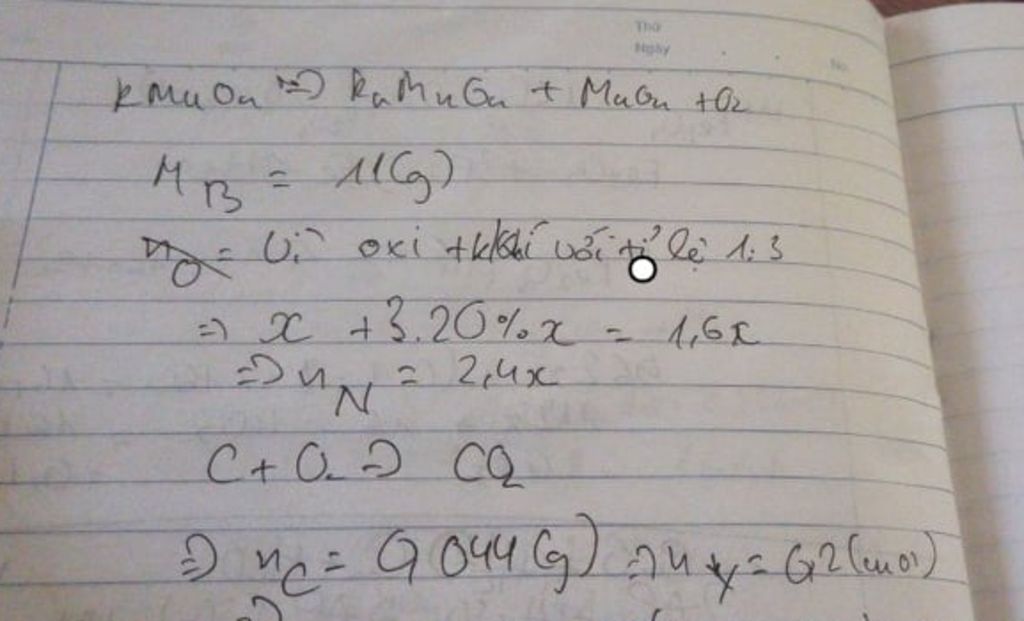 Thứ
Ngày
No
KMnO4 => K2MnO4 + MnO2 + O2
M B = 11(g)
n O = Vì oxi + k/khí với tỉ lệ 1:3
=> x + 3.20% x = 1,6x
=> n N = 2,4x
C + O2 => CO2
=> n C = 0,044(g) => n Y = 0,2(mol)